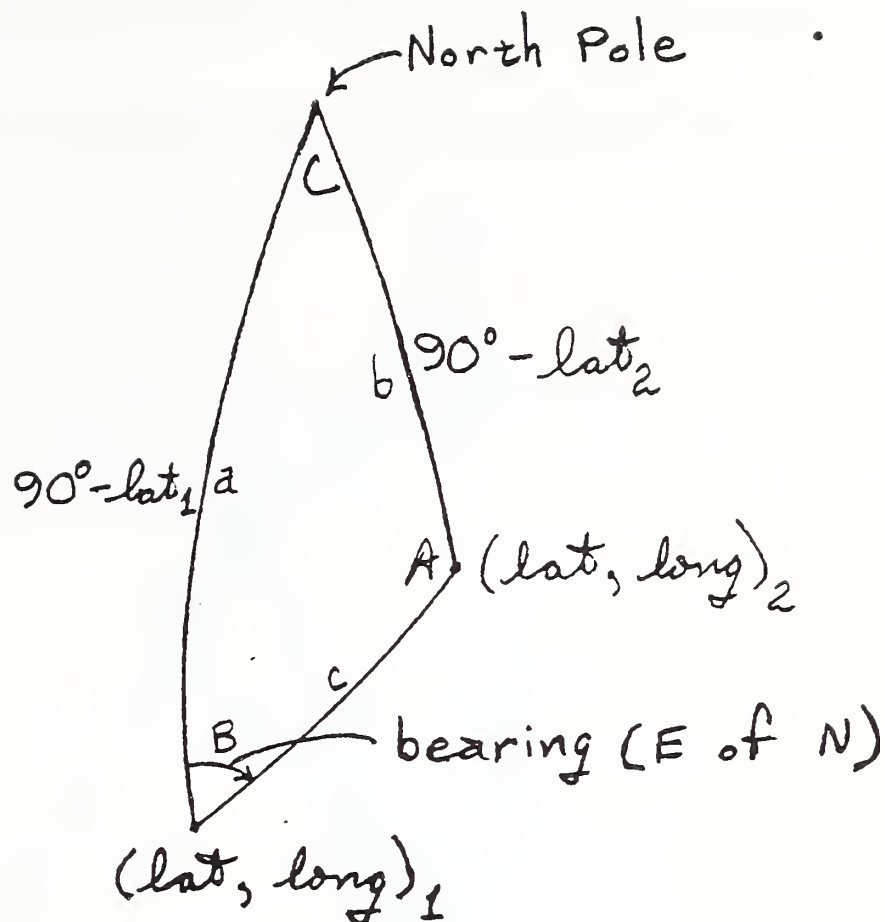 North Pole
C
90° - lat₂
b
90° - lat₁ a
A (lat, long)₂
c
B
bearing (E of N)
(lat, long)₁